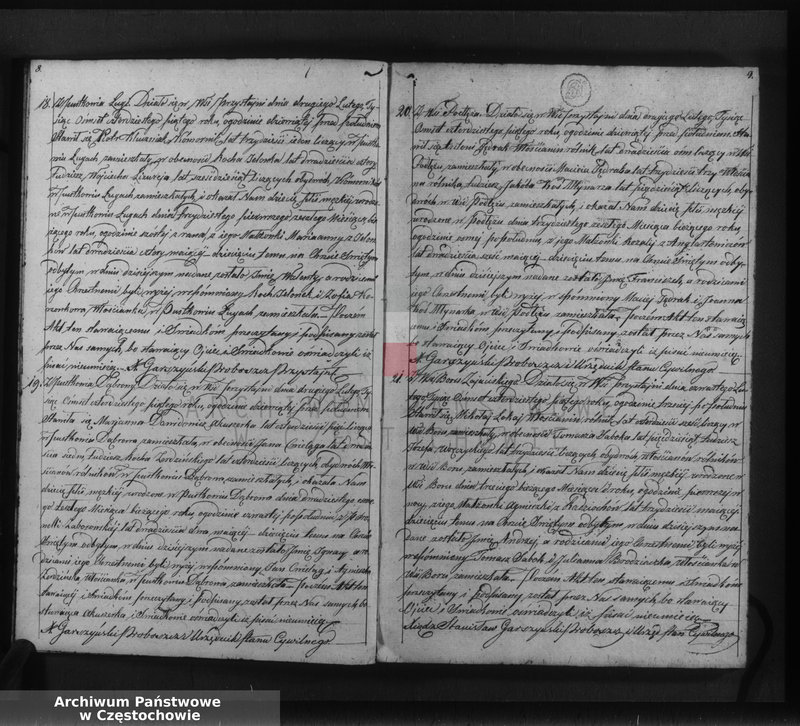 8.
18. Pustkowia Ługi. Działo się w Wsi Przystajni dnia drugiego Lutego Ty-
siąc Ośmset czterdziestego piątego roku, o godzinie dziewiątej przed południem
stawił się Piotr Komornik lat trzydzieści w Pustko-
wiu Ługach zamieszkały, w obecności Rocha Jelonka lat dwadzieścia cztery
tudzież Wojciecha lat sześćdziesiąt liczących obydwóch Komorników
w Pustkowiu Ługach zamieszkałych, i okazał Nam dziecię płci męskiej urodzo-
ne w Pustkowiu Ługach dnia trzydziestego pierwszego zeszłego Miesiąca bie-
żącego roku, o godzinie szóstej z rana, z jego Małżonki Marianny z Jelon-
ków lat dwadzieścia cztery mającej dziecięciu temu na Chrzcie Świętym
odbytym w dniu dzisiejszym nadane zostało Imię Walenty, a rodzicami
jego Chrzestnemi byli wyżej wspomniony Roch Jelonek i Zofia
Włościanka w Pustkowiu Ługach zamieszkała. Poczem
Akt ten stawającemu i Świadkom przeczytany i podpisany został
przez Nas samych, bo stawający Ojciec i Świadkowie oświadczyli iż
pisać nieumieją. X. Garczyński Proboszcz Przystajni
19. Pustkowia Dąbrowy. Działo się w Wsi Przystajni dnia drugiego Lutego Ty-
siąc Ośmset czterdziestego piątego roku, o godzinie dziewiątej przed południem
Stawiła się Maryanna Akuszerka lat czterdzieści pięć licząca
w Pustkowiu Dąbrowa zamieszkała, w obecności Jana Cieśląga lat dwadzie-
ścia siedm tudzież Rocha lat czterdzieści liczących obydwóch Wło-
ścianów rolników w Pustkowiu Dąbrowa zamieszkałych, i okazała Nam
dziecię płci męskiej urodzone w Pustkowiu Dąbrowa dnia dwudziestego
zeszłego Miesiąca bieżącego roku o godzinie czwartej po południu z
Zaborowskiej lat dwadzieścia dwa mającej dziecięciu temu na Chrzcie
Świętym odbytym w dniu dzisiejszym nadane zostało Imię Ignacy a ro-
dzicami jego Chrzestnemi byli wyżej wspomniony Jan Cieśląg i Agnieszka
Włościanka w Pustkowiu Dąbrowa zamieszkała. Poczem Akt ten
stawającej i Świadkom przeczytany i podpisany został przez Nas samych bo
stawająca Akuszerka i Świadkowie oświadczyli iż pisać nieumieją
X. Garczyński Proboszcz i Urzędnik Stanu Cywilnego
9.
20. Działo się w Wsi Przystajni dnia drugiego Lutego Tysiąc
Ośmset czterdziestego piątego roku, o godzinie dziewiątej przed południem, Sta-
wił się Antoni Włościanin rolnik lat dwadzieścia ośm liczący w Wsi
zamieszkały w obecności Macieja lat trzydzieści trzy Włościa-
nina rolnika, tudzież Jakóba Młynarza lat pięćdziesiąt liczących oby-
dwóch w Wsi zamieszkałych, i okazał Nam dziecię płci męskiej
urodzone w dnia trzydziestego zeszłego Miesiąca bieżącego roku,
o godzinie ósmej po południu, z jego Małżonki Rozalij z
lat dwadzieścia sześć mającej dziecięciu temu na Chrzcie Świętym odby-
tym, w dniu dzisiejszym nadane zostało Imię Franciszek, a rodzicami
jego Chrzestnemi byli wyżej wspomniony Maciej i Joanna
Młynarka w Wsi zamieszkała. Poczem Akt ten stawają-
cemu i Świadkom przeczytany i podpisany został przez Nas samych
bo stawający Ojciec i Świadkowie oświadczyli iż pisać nieumieją
X. Garczyński Proboszcz i Urzędnik Stanu Cywilnego
21. Wsi Boru Zajacińskiego. Działo się w Wsi Przystajni dnia czwartego Lu-
tego Tysiąc Ośmset czterdziestego piątego roku, o godzinie trzeciej po południu
Stawił się Mikołaj Włościanin rolnik lat czterdzieści sześć liczący w
Wsi Boru zamieszkały w obecności Tomasza Sabok lat pięćdziesiąt tudzież
Józefa lat trzydzieści liczących obydwóch Włościanów rolników
w Wsi Boru zamieszkałych, i okazał Nam dziecię płci męskiej urodzone w
Wsi Boru dnia trzeciego bieżącego Miesiąca i roku, o godzinie pierwszej w
nocy, z jego Małżonki Agnieszki z lat trzydzieści mającej
dziecięciu temu na Chrzcie Świętym odbytym, w dniu dzisiejszym na-
dane zostało Imię Andrzej a rodzicami jego Chrzestnemi byli wyżej
wspomniony Tomasz Sabok i Julianna Brodzińska, Włościanka w
Wsi Boru zamieszkała. Poczem Akt ten stawającemu i Świadkom
przeczytany i podpisany został przez Nas samych, bo stawający
Ojciec i Świadkowie oświadczyli iż pisać nieumieją
Xiądz Stanisław Garczyński Proboszcz i Urzęd. Stan. Cywilnego
Archiwum Państwowe
w Częstochowie